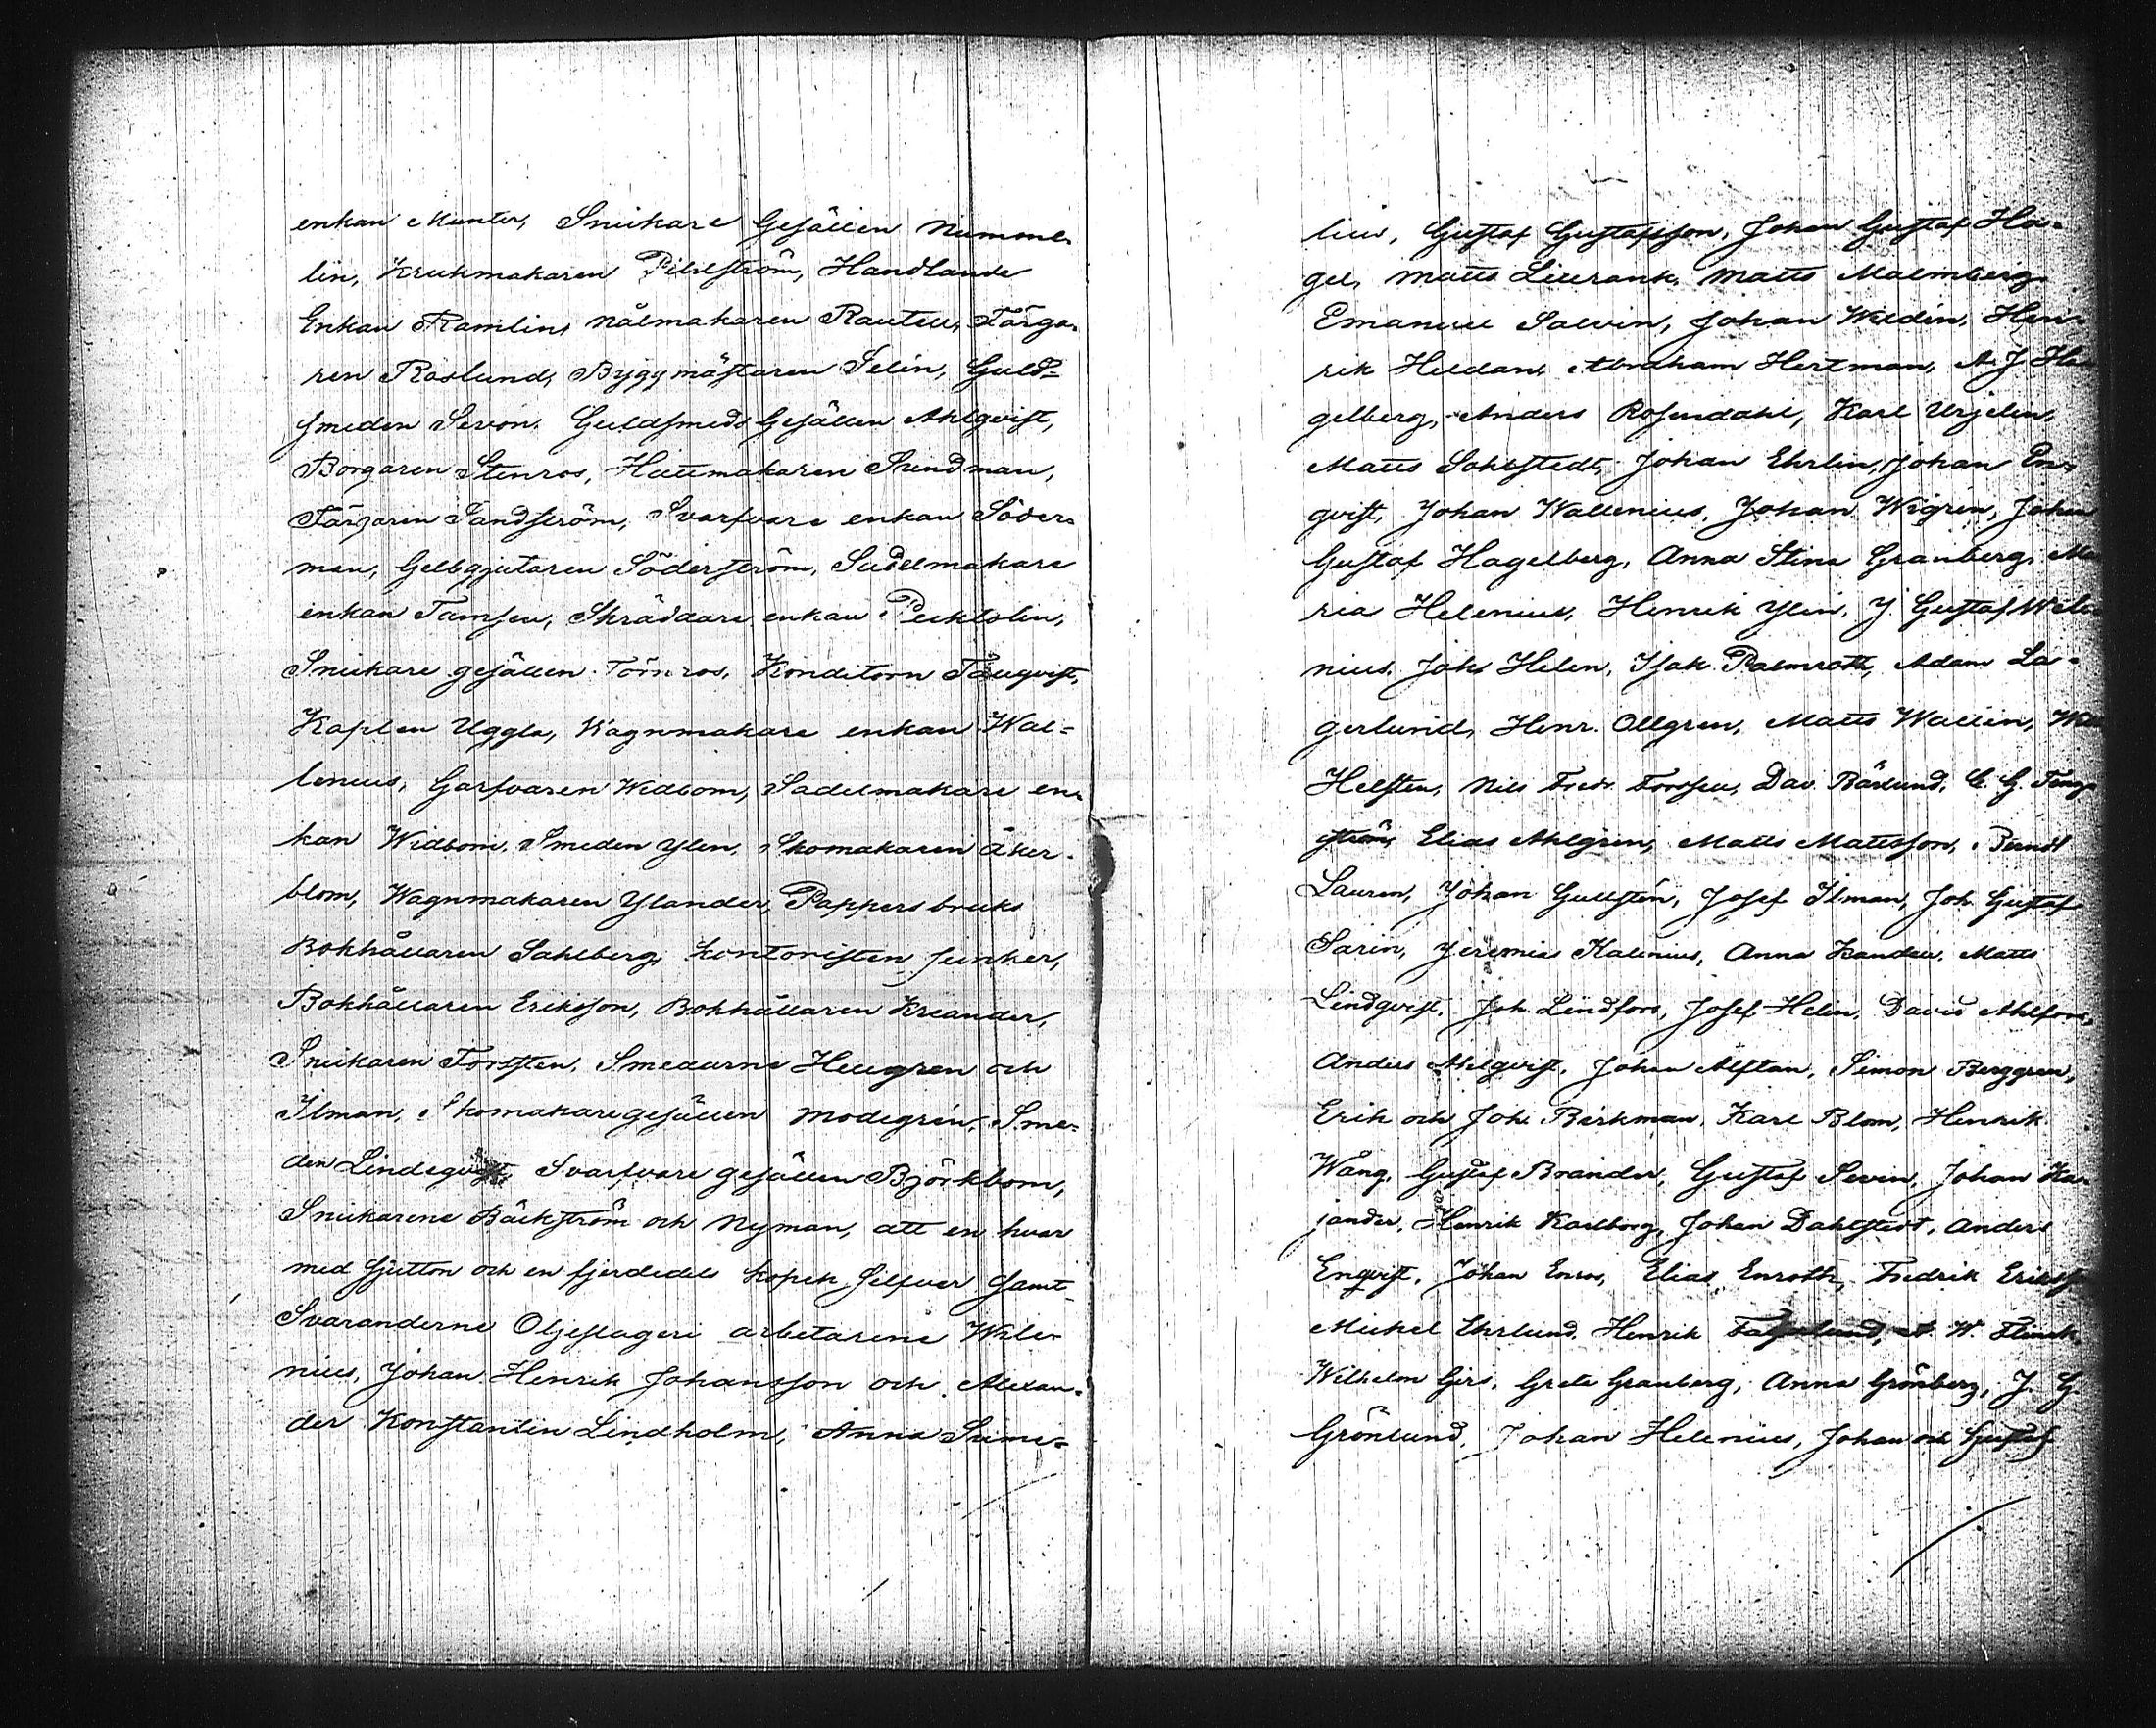 enkan Munter, Snickare Gesällen Nummel-
lin, Krukmakaren Pihlström, Handlande
Enkan Ramlin, Nålmakaren Rautell, Färga-
ren Roslund, Byggmästaren Selin, Guld-
smeden Sevon. Guldsmeds Gesällen Ahlqvist,
Borgaren Stenros, Hattmakaren Sundman,
Färgaren Sandström, Svarfvare enkan Söder-
man, Gelbgjutaren Söderström, Sadelmakare
enkan Tamsen, Skräddare enkan
Snickare gesällen Törnros, Konditorn
Kaplen Uggla, Wagnmakare enkan Wal-
lenius, Garfvaren Widbom, Sadelmakare en-
kan Widbom. Smeden Ylen, Skomakaren Åker-
blom, Wagnmakaren Ylander, Pappersbruks
Bokhållaren Sahlberg, kontoristen Junker,
Bokhållaren Eriksson, Bokhållaren Kreander,
Snickaren Forssten, Smedarne Hellgren och
Ilman, Skomakaregesällen Modegrén, Sme-
den Lindeqvist, Svarfvare gesällen Björkbom,
Snickarene Bäckström och Nyman, att en hvar
med sjutton och en fjerdedels kopek Silfver samt
Svaranderne Oljeslageri arbetarene Wile-
nius, Johan Henrik Johansson och Alexan-
der Konstantin Lindholm, Anna Sume-
lius, Gustaf Gustafsson, Johan Gustaf Ha-
gel, Matts Lillrank, Matts Malmberg
Emanuel Salvin, Johan Weldén, Hen-
rik Heldan, Abraham Hertman, A J Ha-
gelberg, Anders Rosendahl, Karl Urjelin,
Matts Sohlstedt, Johan Ehrlin, Johan En-
qvist, Johan Wallenius, Johan Wigrén, Johan
Gustaf Hagelberg, Anna Stina Granberg, Ma
ria Helenius, Henrik Ylin, J. Gustaf Wile-
nius, Joh. Helen, Isak Palmroth, Adam La-
gerlund, Henr. Ollgren, Matts Wallin,
Helsten, Nils Fredr. Forssell, Dav. Bärlund, C. G. Feng-
ström, Elias Ahlgren, Matts Mattsson, Berndt
Lauren, Johan Gullstén, Josef Ilman, Joh. Gustaf
Sarin, Jeremias Kalenius, Anna Kandell, Matts
Lindqvist, Joh. Lindfors, Josef Helin, David Ahlfors,
Anders Ahlqvist, Johan Alftan, Simon Berggren,
Erik och Joh. Birkman, Karl Blom, Henrik
Wång, Gustaf Brander, Gustaf Sevin, Johan Ka-
jander, Henrik Karlborg, Johan Dahlstedt, Anders
Enqvist, Johan Enros, Elias Enroth, Fredrik Erikss
Mickel Ehrlund, Henrik Fagerlund, A. W. Flinck
Wilhelm Girs, Greta Granberg, Anna Grönberg, J. G
Grönlund, Johan Helenius, Johan och Gustaf